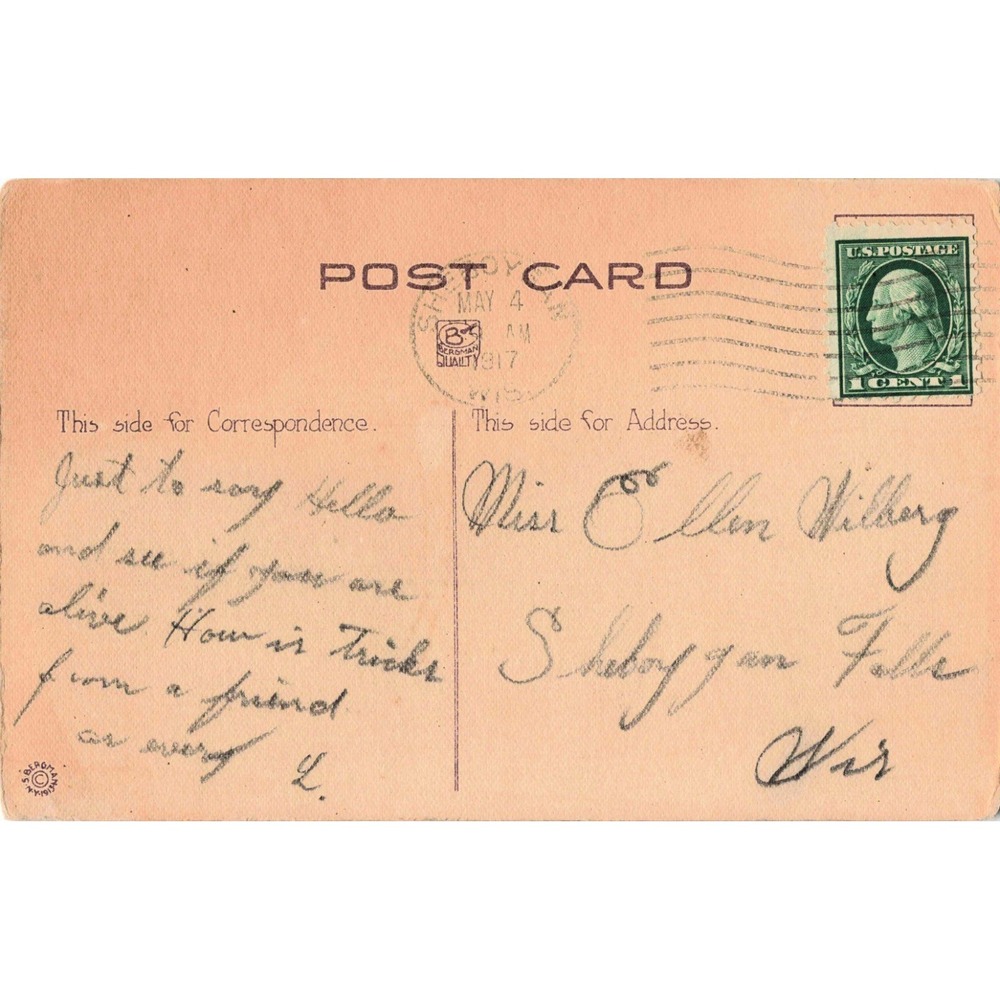 POST CARD
U.S.POSTAGE
1 CENT 1
SHEBOYGAN
MAY 4
AM
1917
WIS.
B
BERGMAN
QUALITY
This side for Correspondence.
Just to say Hello
and see if your are
alive. How is Tricks
from a friend
as every
L.
S. BERGMAN
N.Y. 1913
©
This side for Address.
Miss Ellen Wilberg
Sheboygan Falls
Wis